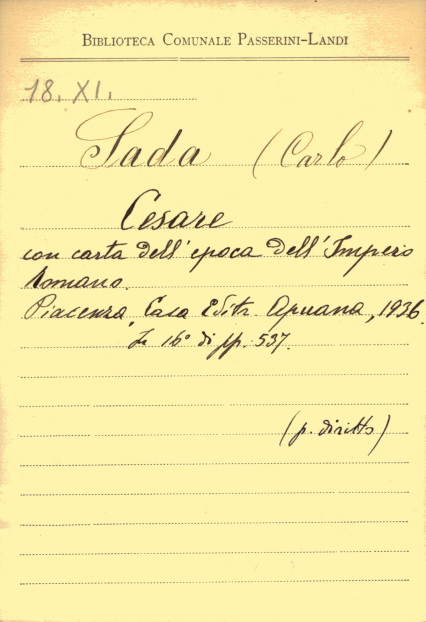 BIBLIOTECA COMUNALE PASSERINI-LANDI
18. XI.
Sada (Carlo)
Cesare
con carta dell'epoca dell'Impero
Romano.
Piacenza, Casa Editr. Apuana, 1926.
In 16° di pp. 537.
(p. diritto)